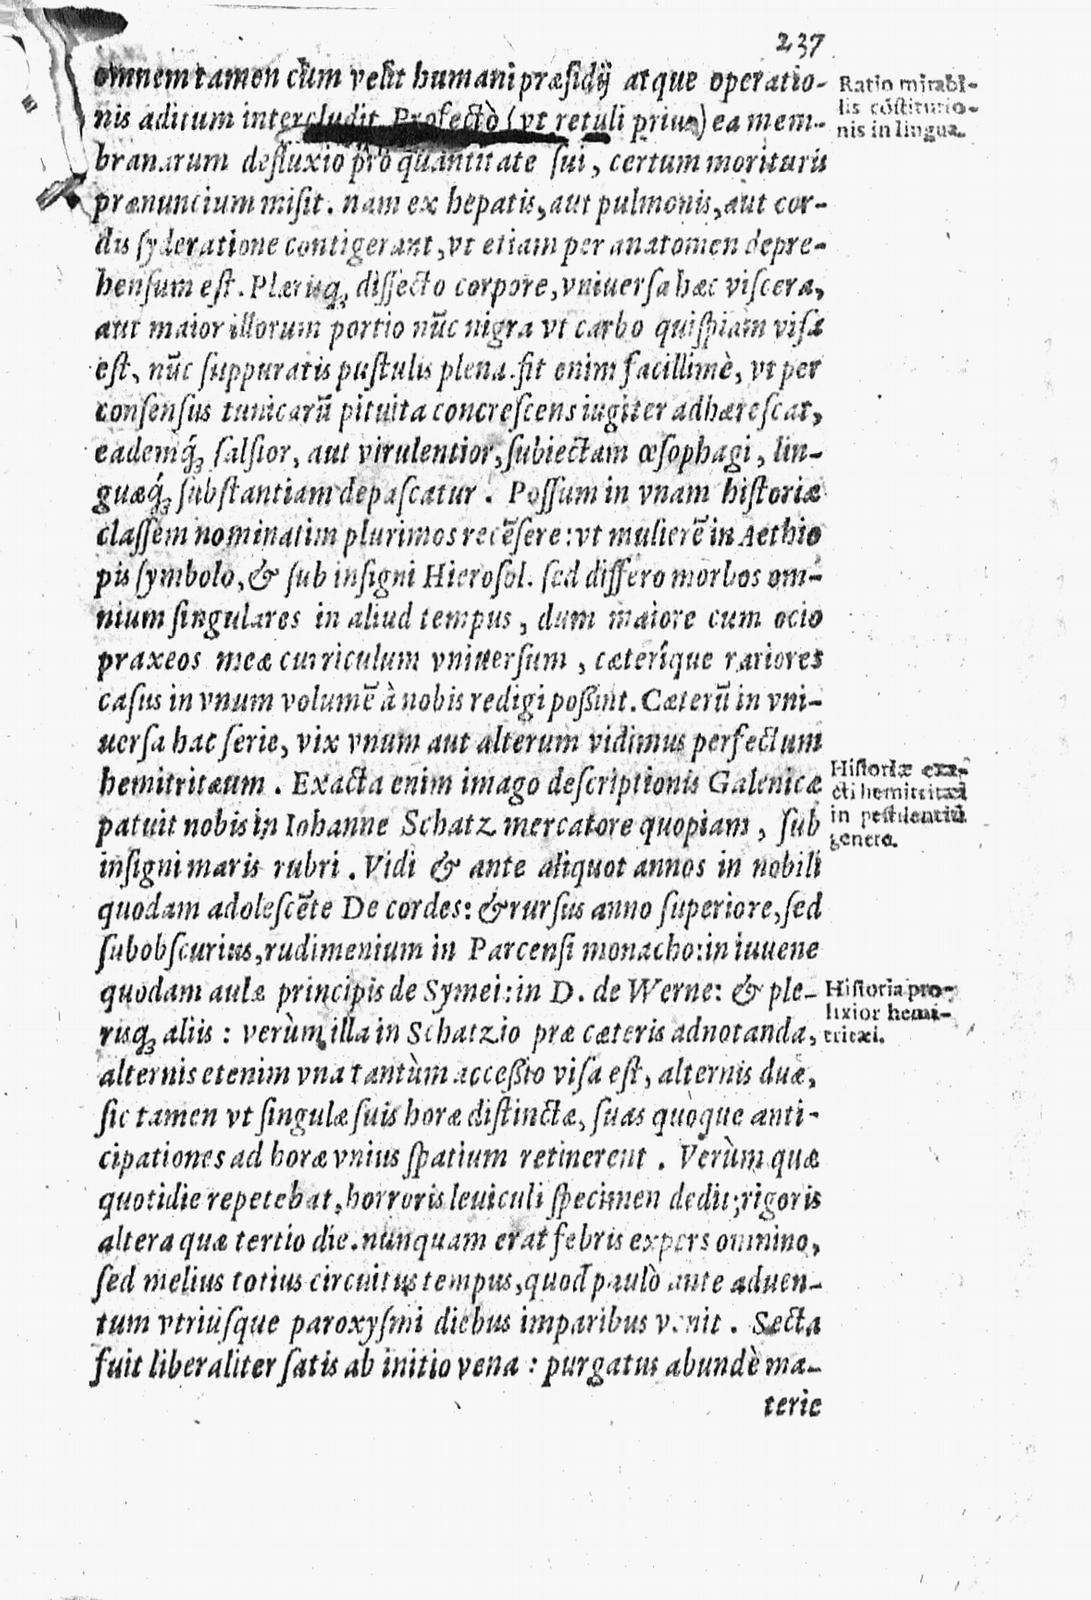 237
omnem tamen cùm velit humani præsidij atque operatio-
nis aditum intercludit. Profectò (vt retuli prius) ea mem-
branarum defluxio pro quantitate sui, certum morituris
prænuncium misit. nam ex hepatis, aut pulmonis, aut cor-
dis syderatione contigerant, vt etiam per anatomen depre-
hensum est. Plæriq; dissecto corpore, vniuersa hæc viscera,
aut maior illorum portio nũc nigra vt carbo quispiam visa
est, nũc suppuratis pustulis plena. fit enim facillimè, vt per
consensus tunicarũ pituita concrescens iugiter adhærescat,
eademq́; salsior, aut virulentior, subiectam œsophagi, lin-
guæq́; substantiam depascatur. Possum in vnam historiæ
classem nominatim plurimos recẽsere: vt mulierẽ in Aethio
pis symbolo, & sub insigni Hierosol. sed differo morbos om-
nium singulares in aliud tempus, dum maiore cum ocio
praxeos meæ curriculum vniuersum, cæteriq́ue rariores
casus in vnum volumẽ à nobis redigi possint. Cæterũ in vni-
uersa hac serie, vix vnum aut alterum vidimus perfectum
hemitritæum. Exacta enim imago descriptionis Galenicæ
patuit nobis in Iohanne Schatz mercatore quopiam, sub
insigni maris rubri. Vidi & ante aliquot annos in nobili
quodam adolescẽte De cordes: & rursus anno superiore, sed
subobscurius, rudimenium in Parcensi monacho: in iuuene
quodam aulæ principis de Symei: in D. de Werne: & ple-
risq; aliis: verùm illa in Schatzio præ cæteris adnotanda,
alternis etenim vna tantùm accessio visa est, alternis duæ,
sic tamen vt singulæ suis horæ distinctæ, suas quoque anti-
cipationes ad horæ vnius spatium retinerent. Verùm quæ
quotidie repetebat, horroris leuiculi specimen dedit; rigoris
altera quæ tertio die. nunquam erat febris expers omnino,
sed melius totius circuitus tempus, quod paulò ante aduen-
tum vtriúsque paroxysmi diebus imparibus venit. Secta
fuit liberaliter satis ab initio vena: purgatus abundè ma-
terie
Ratio mirabi-
lis cõstitutio-
nis in lingua.
Historiæ exa-
cti hemitritæi
in pestilentiũ
genere.
Historia pro-
lixior hemi-
tritæi.